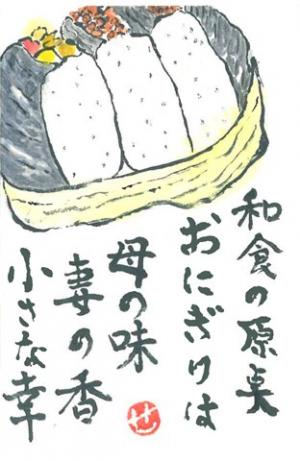 和食の原点
おにぎりは
母の味
妻の香
小さな幸
せ